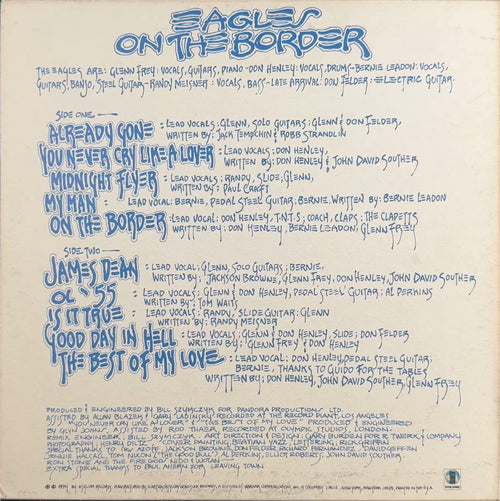 EAGLES
ON THE BORDER
THE EAGLES ARE: GLENN FREY: VOCALS, GUITARS, PIANO - DON HENLEY: VOCALS, DRUMS - BERNIE LEADON: VOCALS,
GUITARS, BANJO, STEEL GUITAR - RANDY MEISNER: VOCALS, BASS - LATE ARRIVAL: DON FELDER: ELECTRIC GUITAR.
SIDE ONE —
ALREADY GONE : LEAD VOCALS; GLENN, SOLO GUITARS; GLENN & DON FELDER,
WRITTEN BY: JACK TEMPCHIN & ROBB STRANDLIN
YOU NEVER CRY LIKE A LOVER : LEAD VOCALS; DON HENLEY,
WRITTEN BY: DON HENLEY & JOHN DAVID SOUTHER
MIDNIGHT FLYER : LEAD VOCALS; RANDY, SLIDE; GLENN,
WRITTEN BY: PAUL CRAFT
MY MAN : LEAD VOCAL: BERNIE, PEDAL STEEL GUITAR; BERNIE. WRITTEN BY: BERNIE LEADON
ON THE BORDER : LEAD VOCAL: DON HENLEY, T.N.T.S; COACH, CLAPS: THE CLAPETTS
WRITTEN BY: DON HENLEY, BERNIE LEADON, GLENN FREY
SIDE TWO —
JAMES DEAN : LEAD VOCAL; GLENN, SOLO GUITARS; BERNIE,
WRITTEN BY: JACKSON BROWNE, GLENN FREY, DON HENLEY, JOHN DAVID SOUTHER
OL' 55 : LEAD VOCALS: GLENN & DON HENLEY, PEDAL STEEL GUITAR: AL PERKINS
WRITTEN BY: TOM WAITS
IS IT TRUE : LEAD VOCALS: RANDY, SLIDE GUITAR: GLENN
WRITTEN BY: RANDY MEISNER
GOOD DAY IN HELL : LEAD VOCALS; GLENN & DON HENLEY, SLIDE; DON FELDER
WRITTEN BY: GLENN FREY & DON HENLEY
THE BEST OF MY LOVE : LEAD VOCAL: DON HENLEY, PEDAL STEEL GUITAR;
BERNIE, THANKS TO GUIDO FOR THE TABLES
WRITTEN BY: DON HENLEY, JOHN DAVID SOUTHER, GLENN FREY
PRODUCED & ENGINEERED BY BILL SZYMCZYK FOR PANDORA PRODUCTIONS LTD.
ASSISTED BY ALLAN BLAZEK & GARY LADINSKY RECORDED AT THE RECORD PLANT, LOS ANGELES
"YOU NEVER CRY LIKE A LOVER" & "THE BEST OF MY LOVE" PRODUCED & ENGINEERED
BY GLYN JOHNS, ASSISTED BY ROD THAER, RECORDED AT OLYMPIC STUDIOS, LONDON
REMIX ENGINEER, BILL SZYMCZYK. ART DIRECTION & DESIGN: GARY BURDEN FOR R. TWERK & COMPANY
PHOTOGRAPHY: HENRY DILTZ. COVER PAINTING, BEATIAN YAZZ. LETTERING, RICK GRIFFIN
SPECIAL THANKS TO: JACKSON BROWNE, DON FELDER, RICHARD FERNANDEZ, DAVID GEFFEN,
TOM NIXON, THE GOOD BLUE, AL PERKINS, ELLIOT ROBERTS, JOHN DAVID SOUTHER,
RON STONE AND THE
EXTRA SPECIAL THANKS TO PAUL AHERN FOR LEAVING TOWN
℗ © 1974